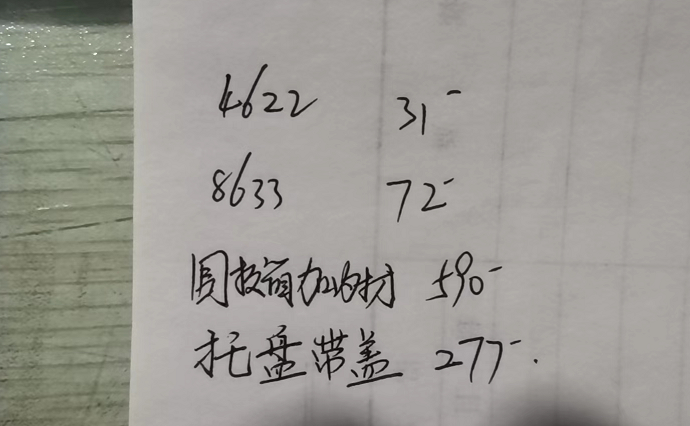 4622 31-
8633 72-
周 箱加 590-
托盘带盖 277-.